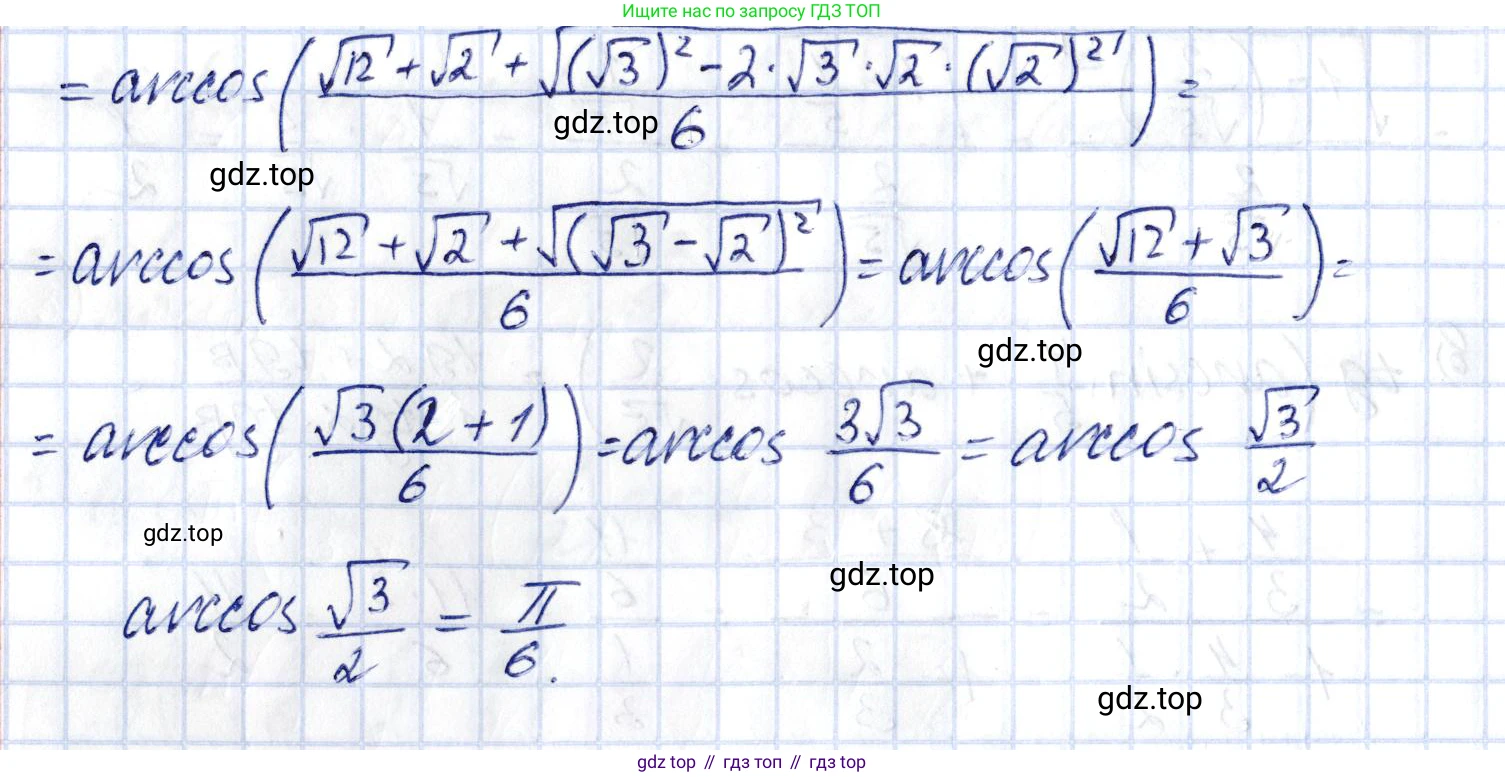 Ищите нас по запросу ГДЗ ТОП
= arccos(√12 + √2 + √((√3)² - 2·√3·√2·(√2)²) / 6) =
gdz.top
gdz.top
= arccos(√12 + √2 + √((√3 - √2)²) / 6) = arccos(√12 + √3 / 6) =
gdz.top
= arccos(√3(2 + 1) / 6) = arccos 3√3 / 6 = arccos √3 / 2
gdz.top
gdz.top
arccos √3 / 2 = π / 6.
gdz.top
gdz top // гдз топ // гдз top